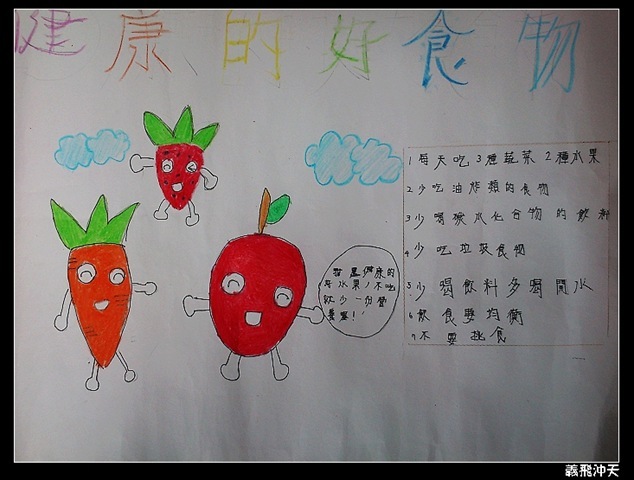 健康的好食物
1 每天吃3種蔬菜2種水果
2 少吃油炸類的食物
3 少喝碳水化合物的飲料
4 少吃垃圾食物
5 少喝飲料多喝開水
6 飲食要均衡
7 不要挑食
健康的
水果,不吃
缺少一份營
養喔!
義飛沖天